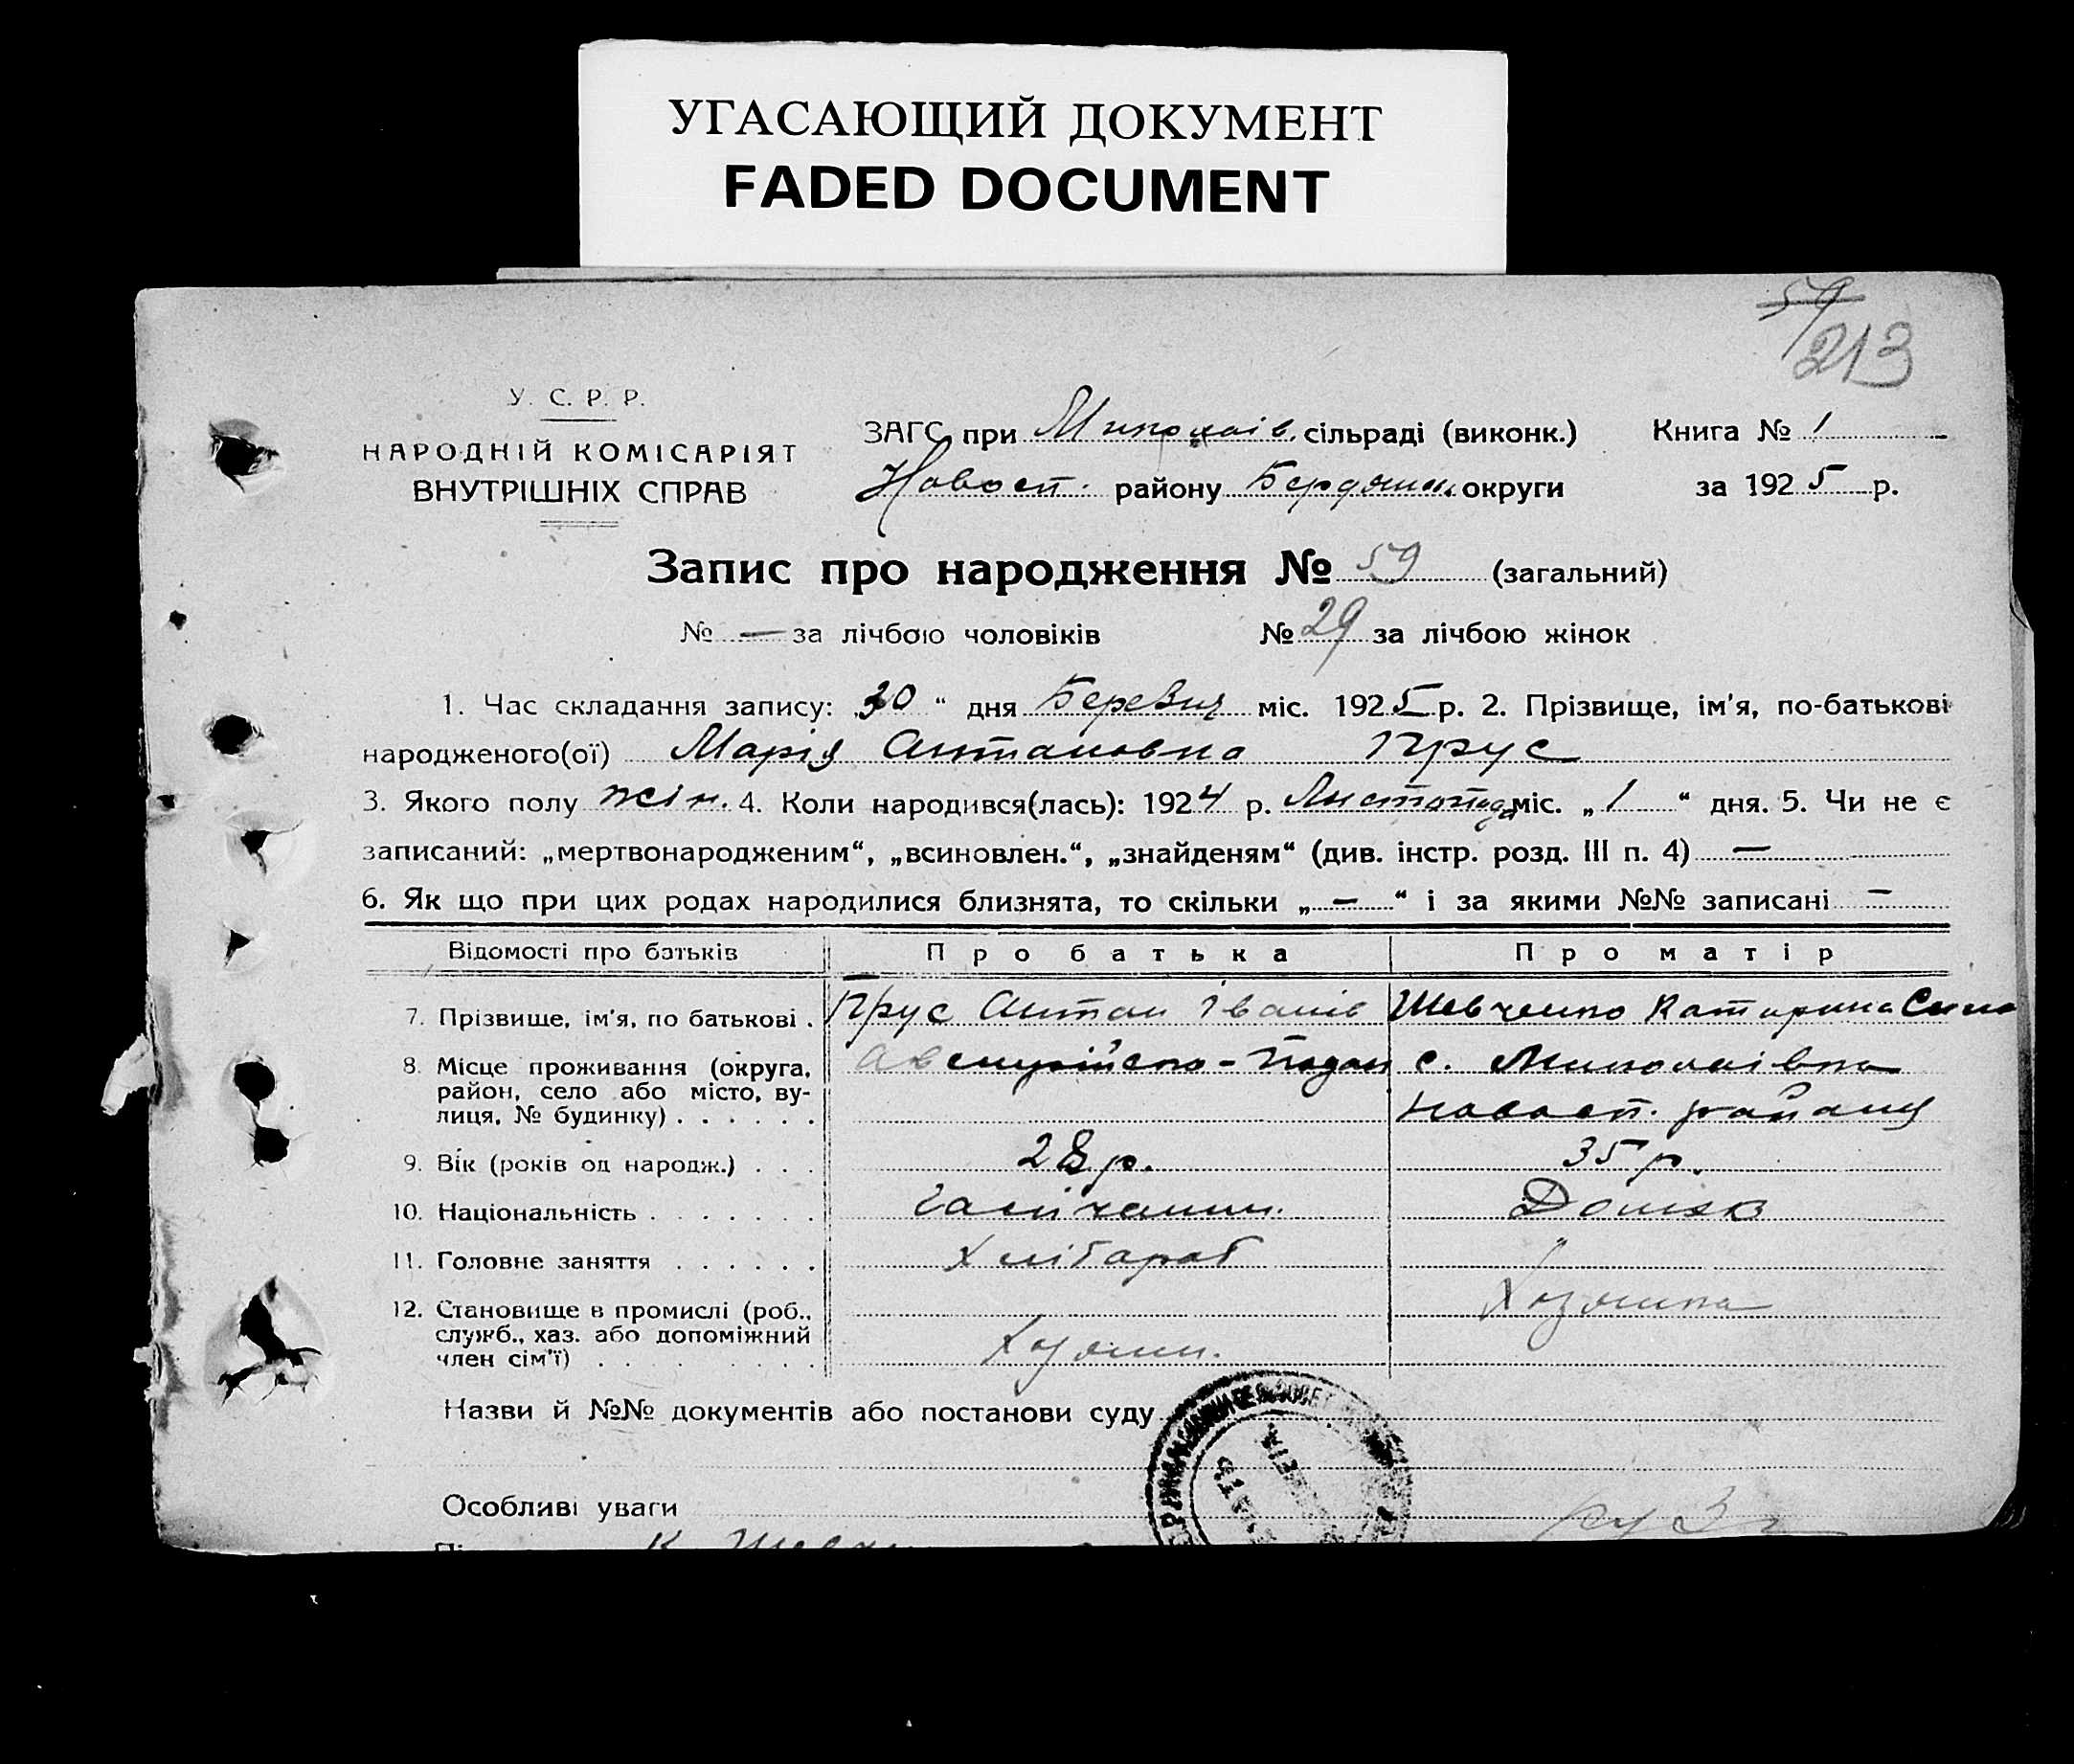 УГАСАЮЩИЙ ДОКУМЕНТ
FADED DOCUMENT
59
213
У. С. Р. Р.
НАРОДНІЙ КОМІСАРІЯТ
ВНУТРІШНІХ СПРАВ
ЗАГС при Миколаїв. сільраді (виконк.)
Новосп. району Бердянськ. округи
Книга № 1
за 1925 р.
Запис про народження № 59 (загальний)
№ — за лічбою чоловіків № 29 за лічбою жінок
1. Час складання запису: 30 " дня Березня міс. 1925 р. 2. Прізвище, ім'я, по-батькові
народженого(ої) Марія Антановна Прус
3. Якого полу жін. 4. Коли народився(лась): 1924 р. Листопада міс. „ 1 " дня. 5. Чи не є
записаний: „мертвонародженим", „всиновлен.", „знайденям" (див. інстр. розд. III п. 4) —
6. Як що при цих родах народилися близнята, то скільки „ — " і за якими №№ записані —
Відомості про батьків Про батька Про матір
7. Прізвище, ім'я, по батькові . Прус Антан Іванів Шевченко Катирина
8. Місце проживання (округа, район, село або місто, вулиця, № будинку) . . . . . . Австрійско-Подан с. Миколаівка
Новосп. району
9. Вік (років од народж.) . . . 28 р. 35 р.
10. Національність . . . . . . . Галічанин.
11. Головне заняття . . . . . . Хлібараб "
12. Становище в промислі (роб., служб., хаз. або допоміжний член сім'ї) . . . . . . . . . Хозяин. Хозяика
Назви й №№ документів або постанови суду
Особливі уваги
К Шевч